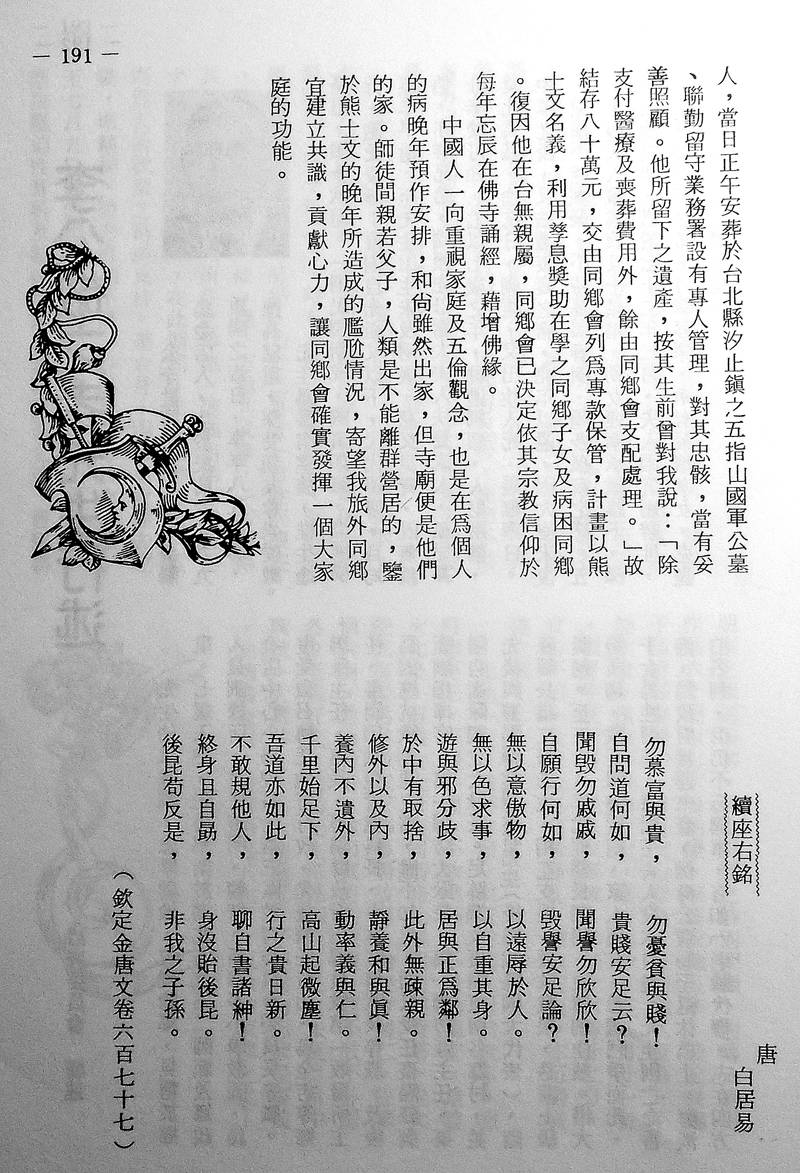 — 191 —
人，當日正午安葬於台北縣汐止鎮之五指山國軍公墓
、聯勤留守業務署設有專人管理，對其忠骸，當有妥
善照顧。他所留下之遺產，按其生前曾對我說：「除
支付醫療及喪葬費用外，餘由同鄉會支配處理。」故
結存八十萬元，交由同鄉會列為專款保管，計畫以熊
士文名義，利用孳息獎助在學之同鄉子女及病困同鄉
。復因他在台無親屬，同鄉會已決定依其宗教信仰於
每年忘辰在佛寺誦經，藉增佛緣。
中國人一向重視家庭及五倫觀念，也是在為個人
的病晚年預作安排，和尚雖然出家，但寺廟便是他們
的家。師徒間親若父子，人類是不能離群營居的，鑒
於熊士文的晚年所造成的尷尬情況，寄望我旅外同鄉
宜建立共識，貢獻心力，讓同鄉會確實發揮一個大家
庭的功能。
續座右銘
唐 白居易
勿慕富與貴，勿憂貧與賤！
自問道何如，貴賤安足云？
聞毀勿戚戚，聞譽勿欣欣！
自願行何如，毀譽安足論？
無以意傲物，以遠辱於人。
無以色求事，以自重其身。
遊與邪分歧，居與正為鄰！
於中有取捨，此外無疎親。
修外以及內，靜養和與眞！
養內不遺外，動率義與仁。
千里始足下，高山起微塵！
吾道亦如此，行之貴日新。
不敢規他人，聊自書諸紳！
終身且自勗，身沒貽後昆。
後昆苟反是，非我之子孫。
（欽定金唐文卷六百七十七）